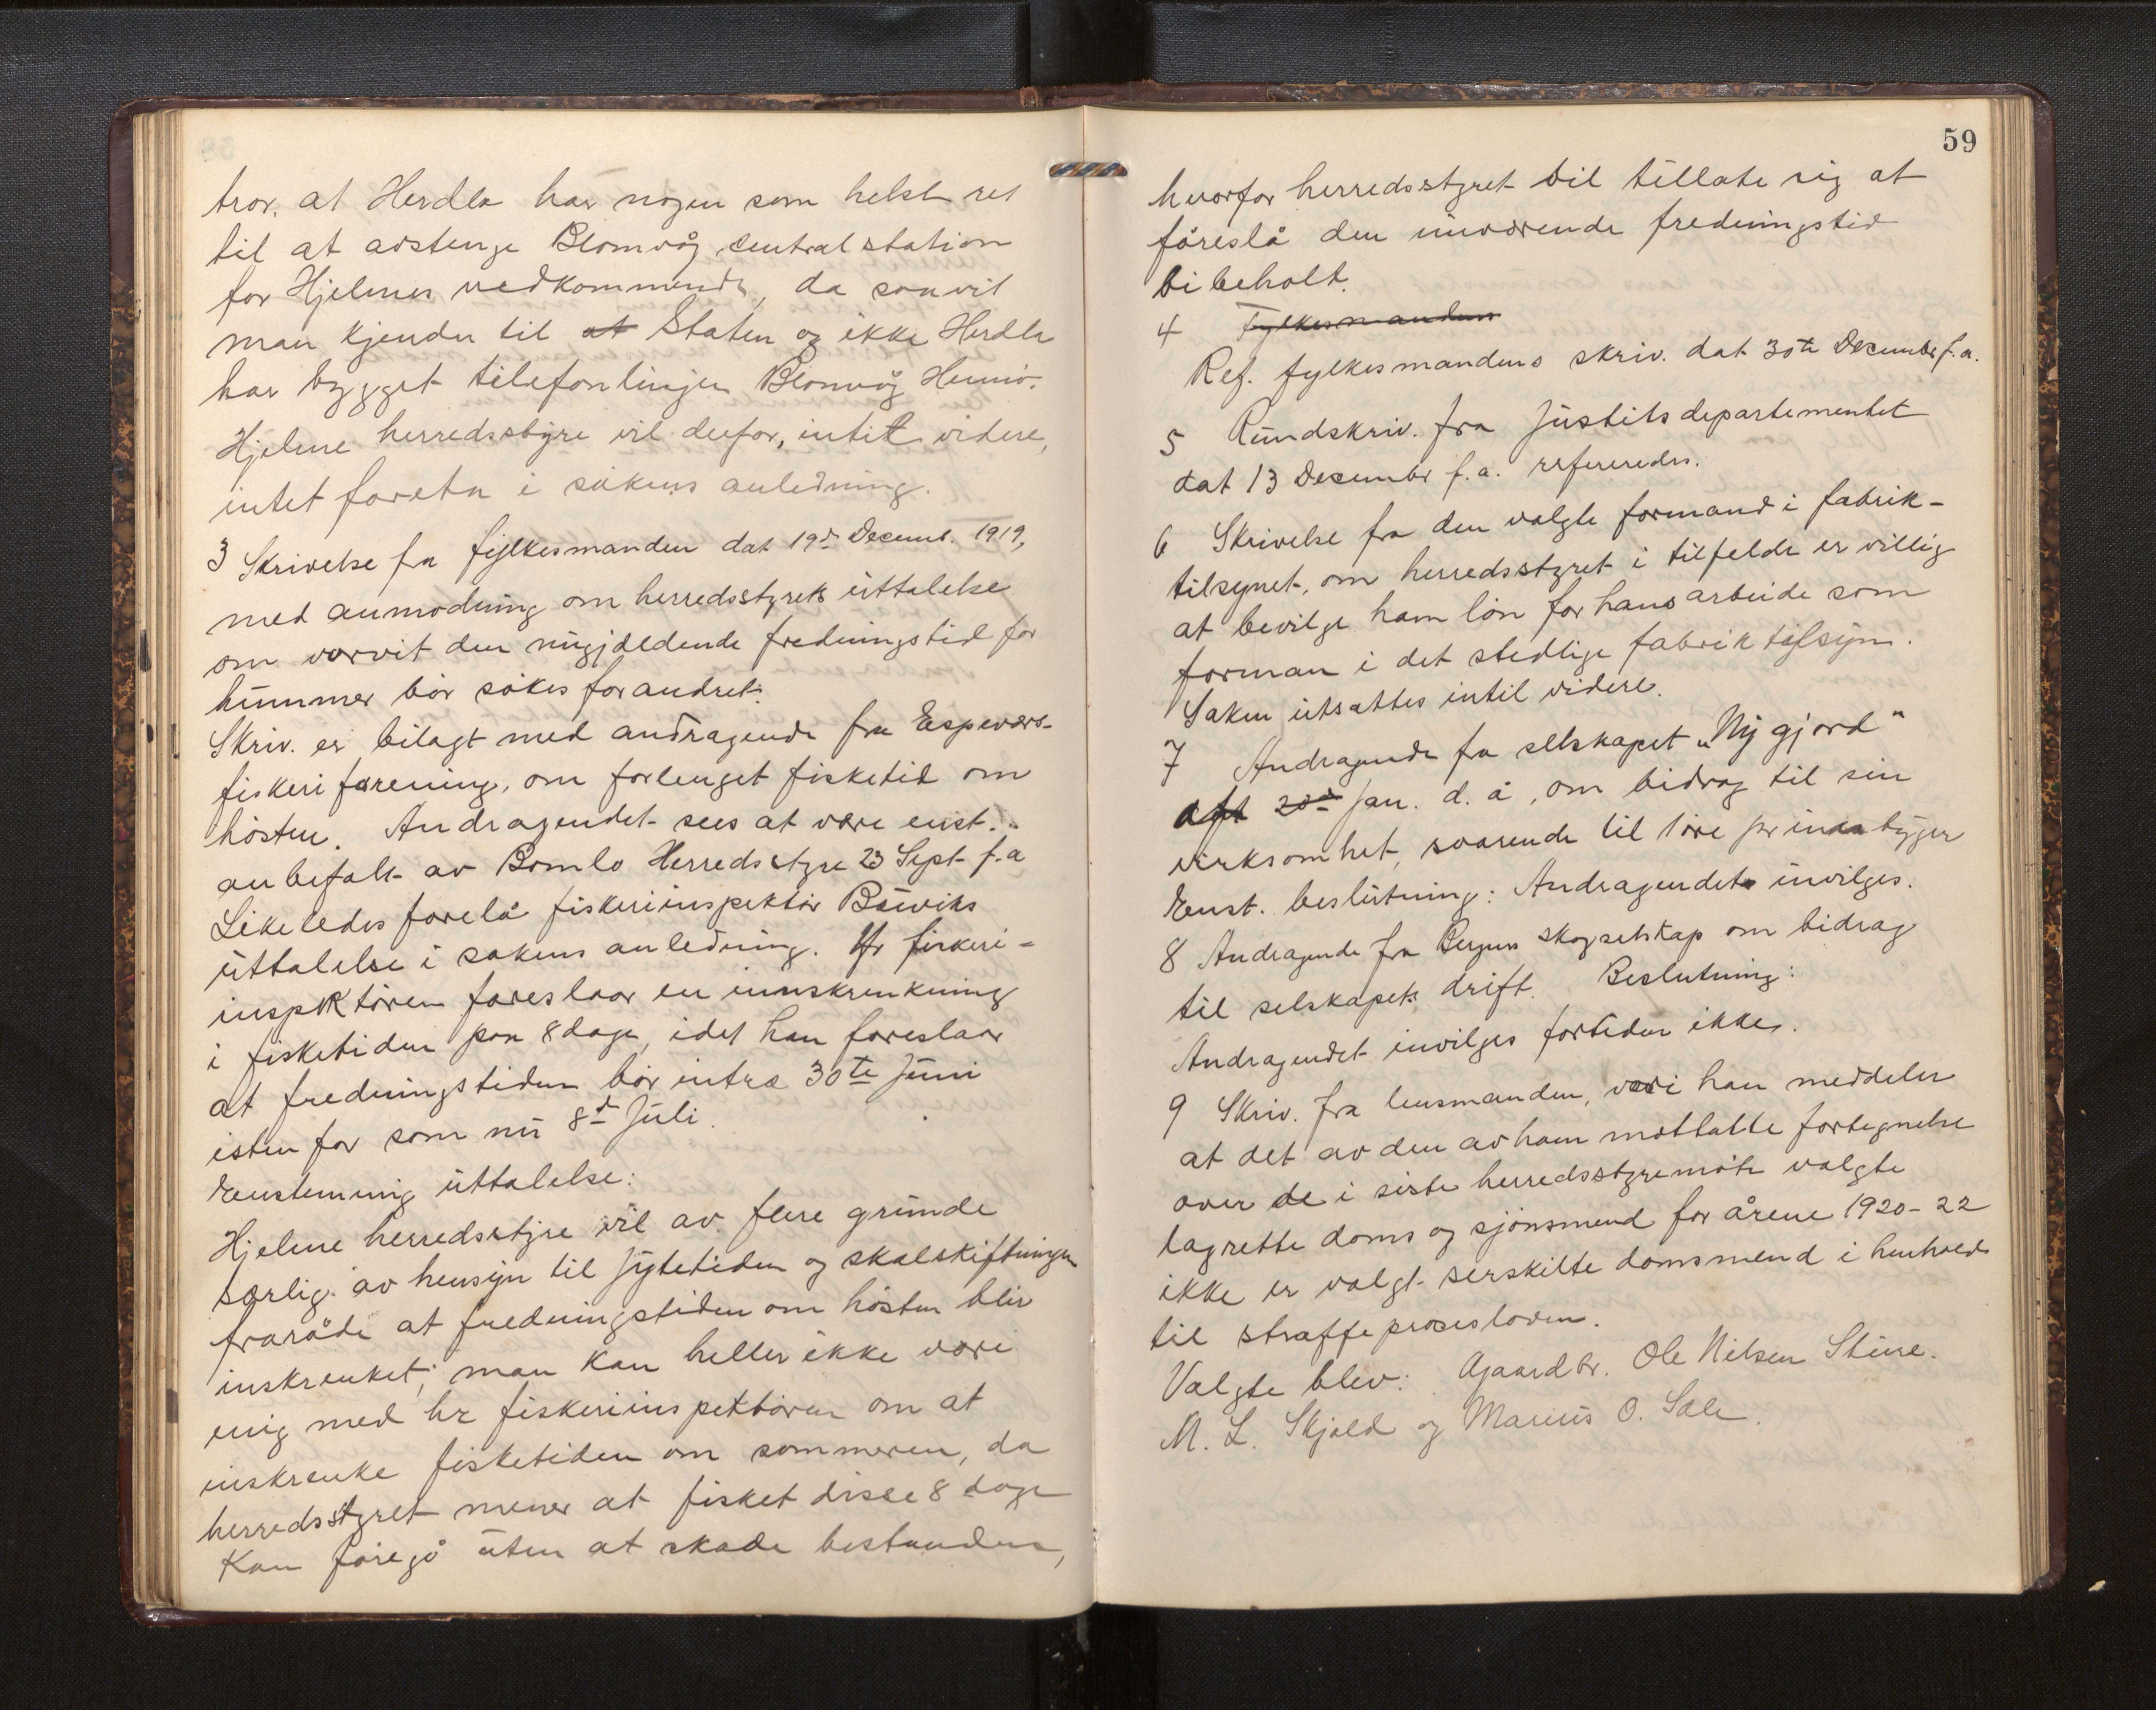 tror, at Herdla har nogen som helst ret
til at avstenge Blomvåg sentralstation
for Hjelmes vedkommende, da saavit
man kjender til at Staten og ikke Herdla
har bygget telefonlinjen Blomvåg Hernö.
Hjelme herredsstyre vil derfor, intil videre,
intet foreta i sakens anledning.
3 Skrivelse fra fylkesmanden dat 19de Decemb. 1919,
med anmodning om herredsstyrets uttalelse
om vorvit den nugjeldende fredningstid for
hummer bör sökes forandret.
Skriv. er bilagt med andragende fra Espeværs-
fiskeriforening, om forlenget fisketid om
hösten. Andragendet sees at være enst.
anbefalt av Bömlo Herredsstyre 23 Sept f.a
Likeledes forelå fiskeriinspektör
uttalelse i sakens anledning. Hr fiskeri-
inspektören foreslaar en innskrenkning
i fisketiden paa 8 dage, idet han foreslaar
at fredningstiden bör intræ 30te Juni
isten for som nu 8de Juli.
Enstemmig uttalelse:
Hjelme herredsstyre vil av flere grunde
særlig av hensyn til jytetiden og skalskiftningen
fraråde at fredningstiden om hösten blir
inskrenket; man kan heller ikke være
enig med hr fiskeriinspektören om at
inskrenke fisketiden om sommeren, da
herredsstyret mener at fisket disse 8 dage
kan foregå uten at skade bestanden,
59
hvorfor herredsstyret vil tillate sig at
föreslå den nuværende fredningstid
bibeholt.
4 Fylkesmandens
Ref. fylkesmandens skriv. dat 30te Decembr f.a.
5 Rundskriv. fra Justitsdepartementet
dat 13 Decembr f.a. refereredes.
6 Skrivelse fra den valgte formand i fabrik-
tilsynet, om herredsstyret i tilfelde er villig
at bevilge ham lön for hans arbeide som
forman i det stedlige fabriktilsyn.
Saken utsattes intil videre.
7 Andragende fra selskapet „Ny gjord"
20de Jan. d. å, om bidrag til sin
virksomhet, svarende til 1 öre pr innbygger
Enst. beslutning: Andragendet invilges.
8 Andragende fra Bergens skogselskap om bidrag
til selskapets drift. Beslutning:
Andragendet invilges fortiden ikke.
9 Skriv. fra lensmanden, vori han meddeler
at det av den av ham mottatte fortegnelse
over de i siste herredsstyremöte valgte
lagrette doms og sjönsmend for årene 1920-22
ikke er valgt serskilte domsmend i henhold
til straffeprosesloven.
Valgte blev: Gaardbr. Ole Nilsen Stüre.
M. L. Skjold og Marius O. Sæle.